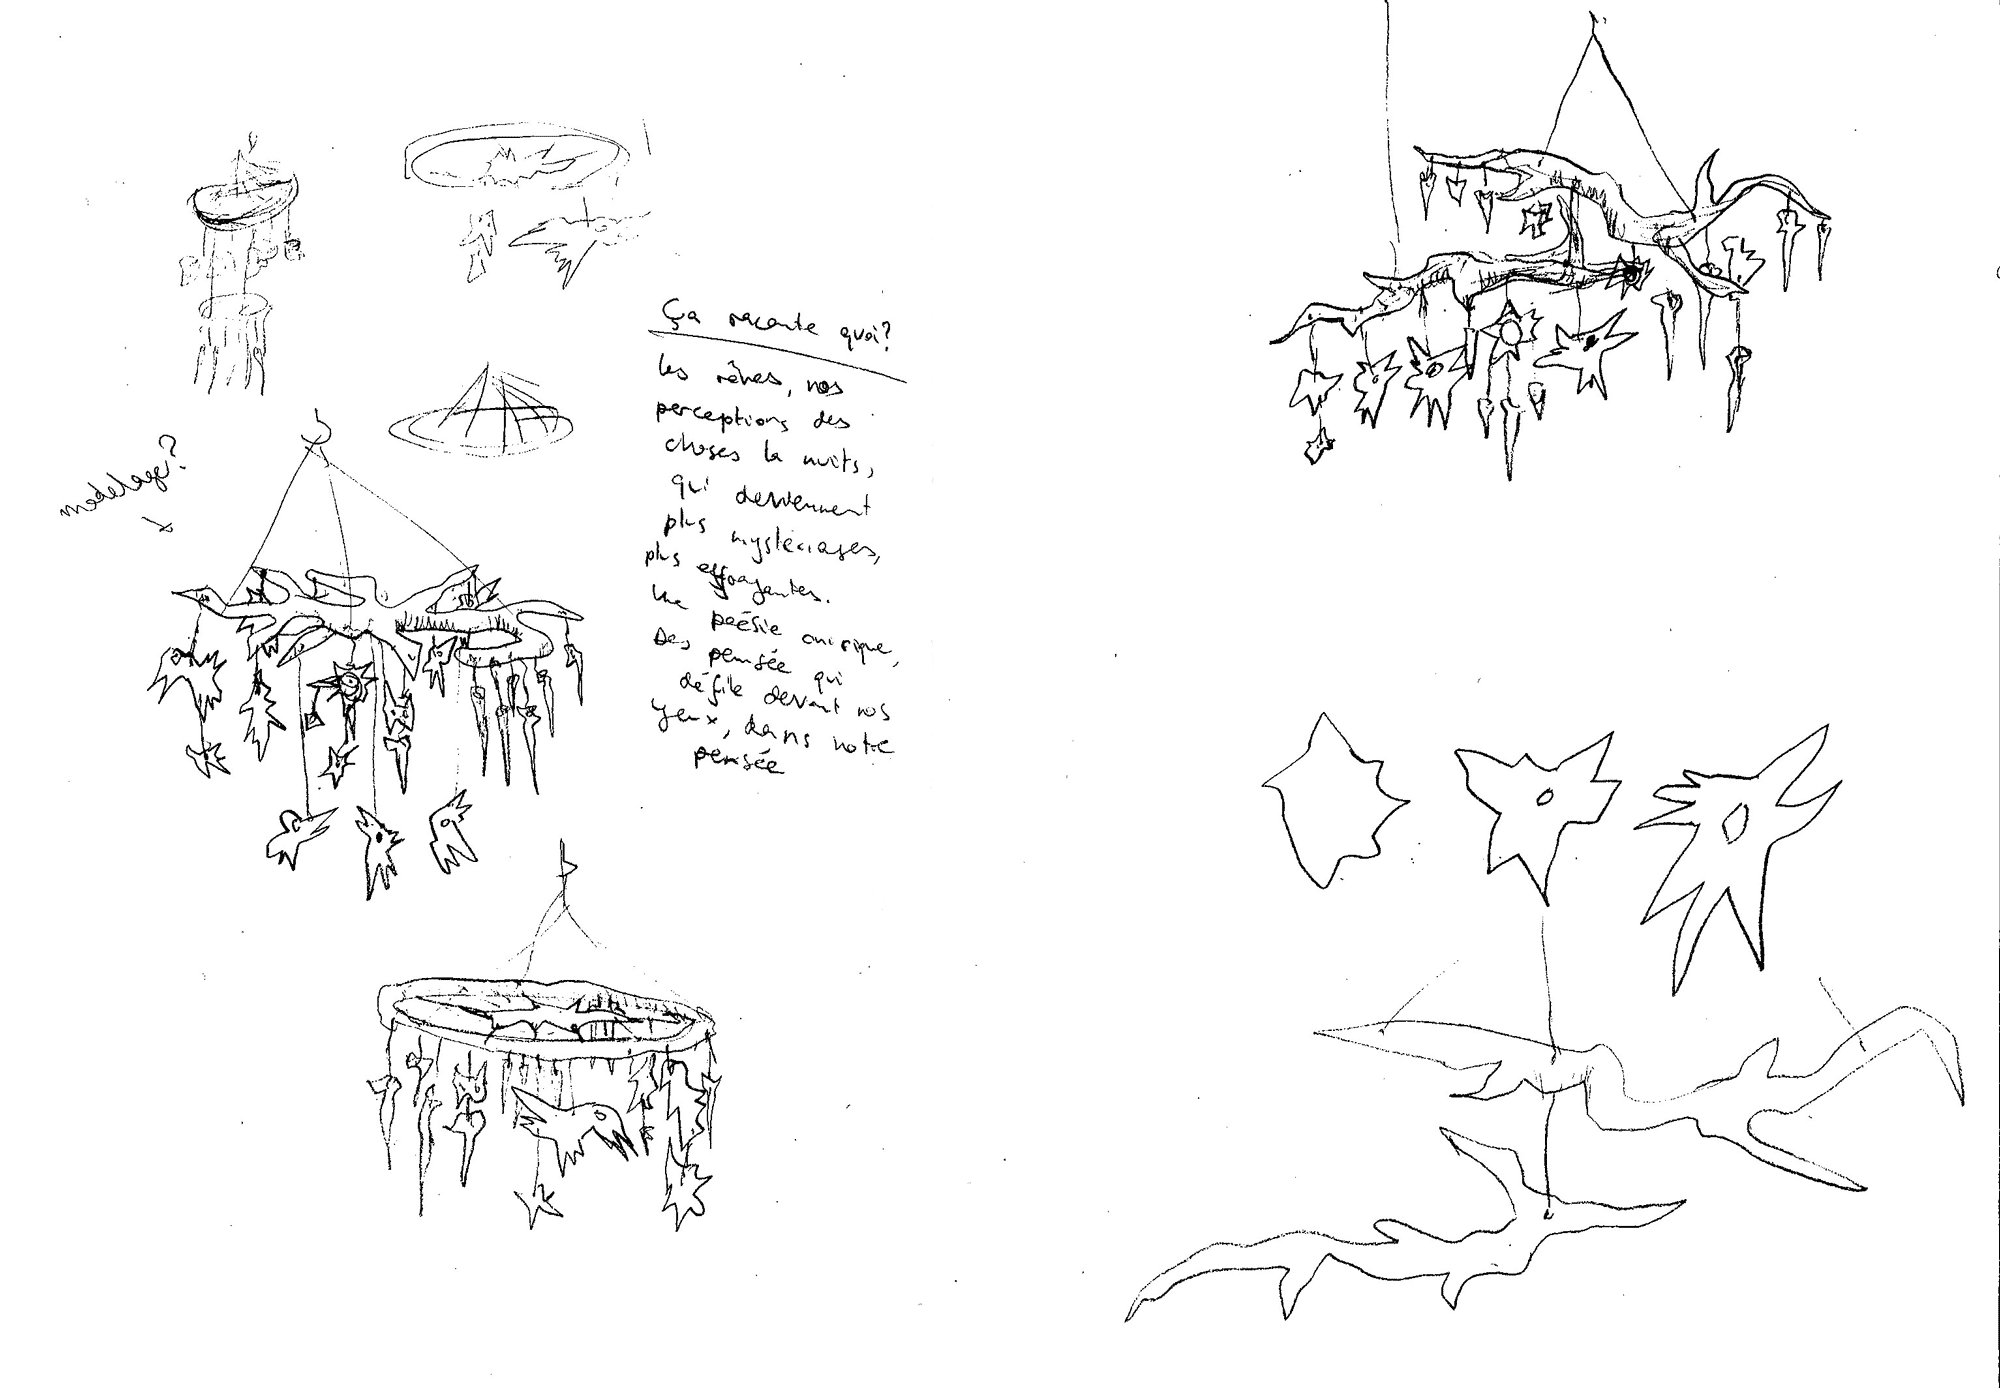 modelage?
Ça raconte quoi?
les rêves, nos
perceptions des
choses la nuits,
qui deviennent
plus mystérieuses,
plus effrayantes.
Une poésie onirique,
Des pensée qui
défile devant nos
yeux, dans notre
pensée